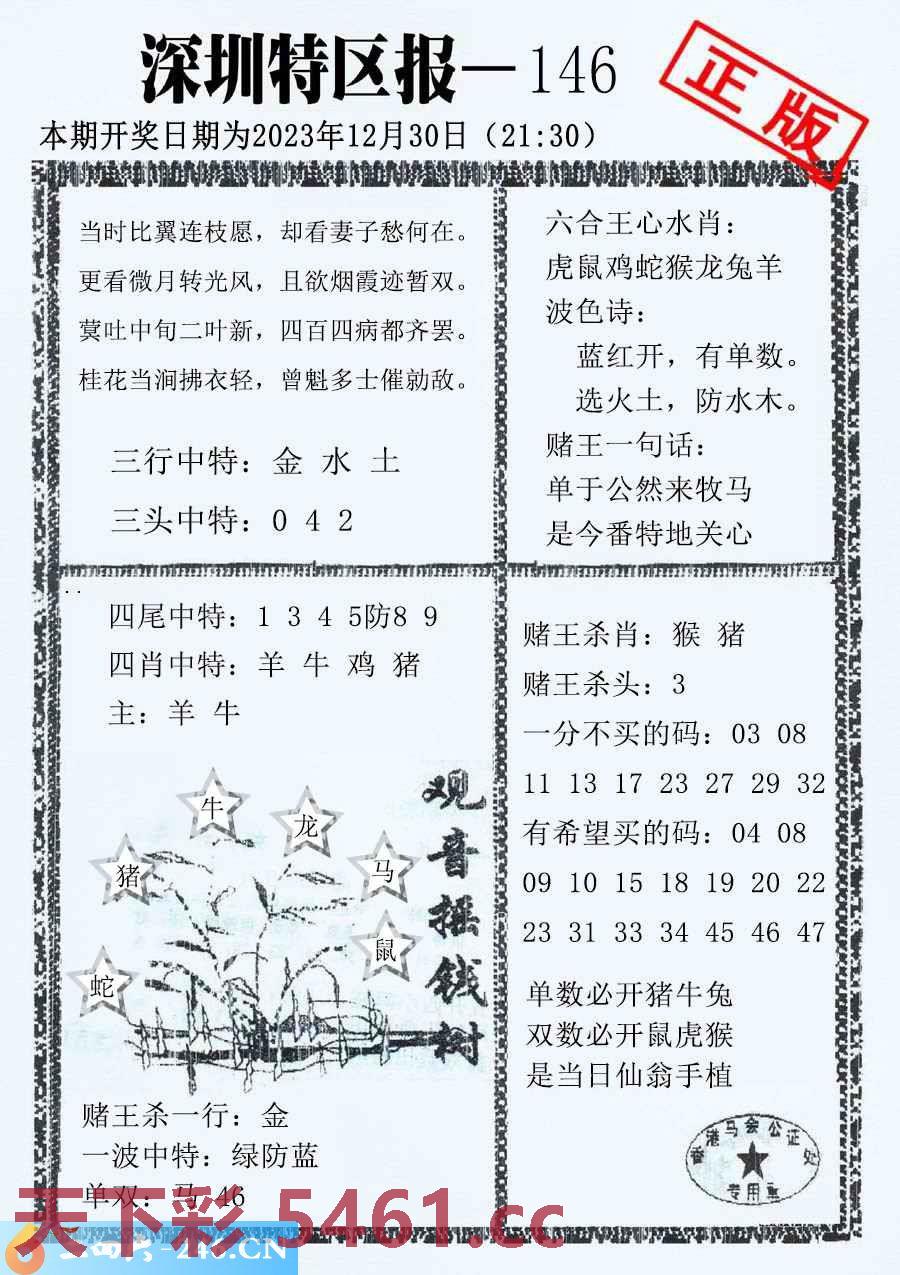 深圳特区报—146
正版
本期开奖日期为2023年12月30日（21:30）
当时比翼连枝愿，却看妻子愁何在。
更看微月转光风，且欲烟霞迹暂双。
蓂吐中旬二叶新，四百四病都齐罢。
桂花当涧拂衣轻，曾魁多士催勍敌。
三行中特：金 水 土
三头中特：0 4 2
六合王心水肖：
虎鼠鸡蛇猴龙兔羊
波色诗：
蓝红开，有单数。
选火土，防水木。
赌王一句话：
单于公然来牧马
是今番特地关心
四尾中特：1 3 4 5防8 9
四肖中特：羊 牛 鸡 猪
主：羊 牛
牛
龙
猪
马
鼠
蛇
观音摇钱树
赌王杀一行：金
一波中特：绿防蓝
单双：马 46
赌王杀肖：猴 猪
赌王杀头：3
一分不买的码：03 08
11 13 17 23 27 29 32
有希望买的码：04 08
09 10 15 18 19 20 22
23 31 33 34 45 46 47
单数必开猪牛兔
双数必开鼠虎猴
是当日仙翁手植
香港马会公证处
专用章
天下彩 5461.cc
-246.CN